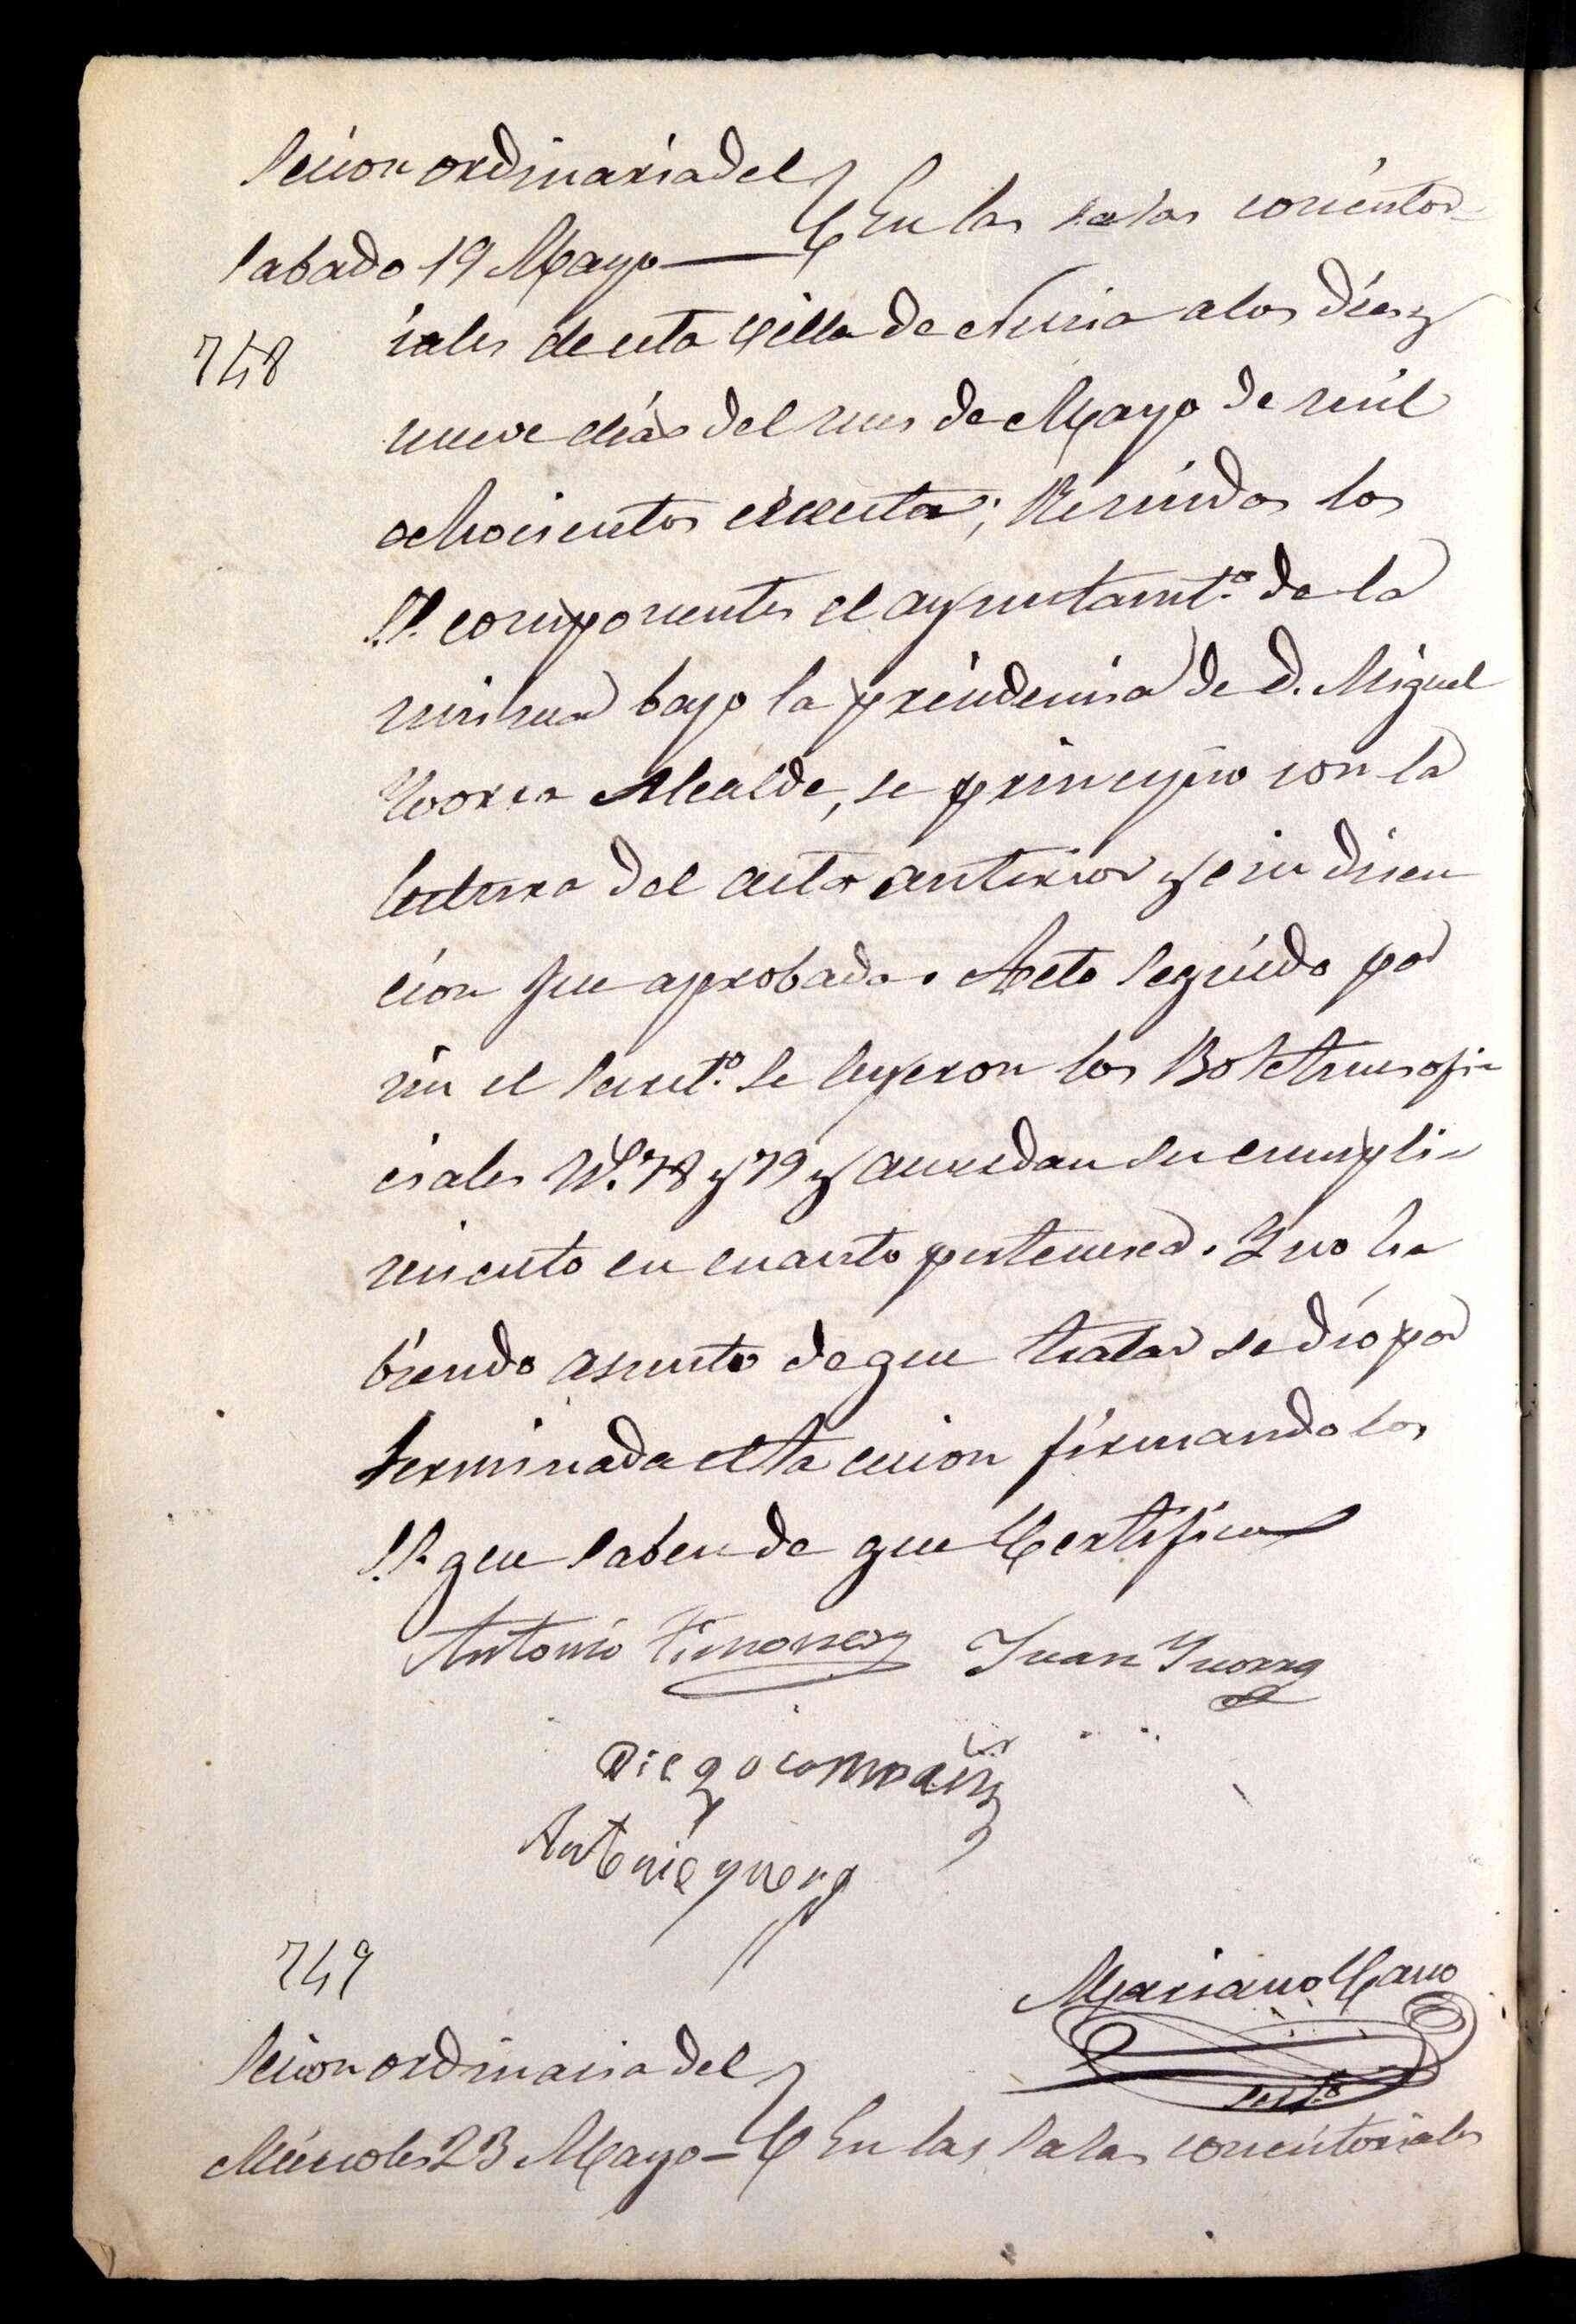 Secion ordinaria del
Sabado 19 Mayo — En las salas concistor-
748
iales de esta Villa de Nucia a los diez y
nueve dias del mes de Mayo de mil
ochocientos; Reunidos los
S.S. componentes el ayuntamt.º de la
misma bajo la precidencia de D. Miguel
Alcalde, se principio con la
lectura del acta anterior y sin discu
cion fue aprobada. Acto seguido por
mi el Secret.º se leyeron los Boletines ofi-
ciales N.º 78 y 79 y acuerdan su cumpli-
miento en cuanto pertenesca. Y no ha
biendo asunto de que tratar se dió por
terminada esta cecion firmando los
S.S. que saben de que Certifico
Antonio Juan Ivorra
Diego company
Antonio yvorra
749
Mariano Cano
Secret.º
Secion ordinaria del
Miercoles 23 Mayo - En las Salas concistoriales